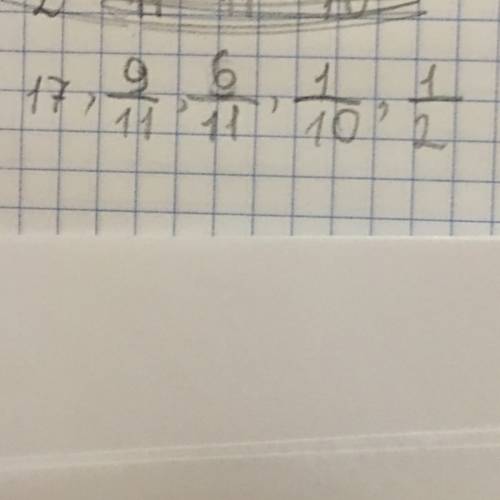 17, 9/11, 6/11, 1/10, 1/2